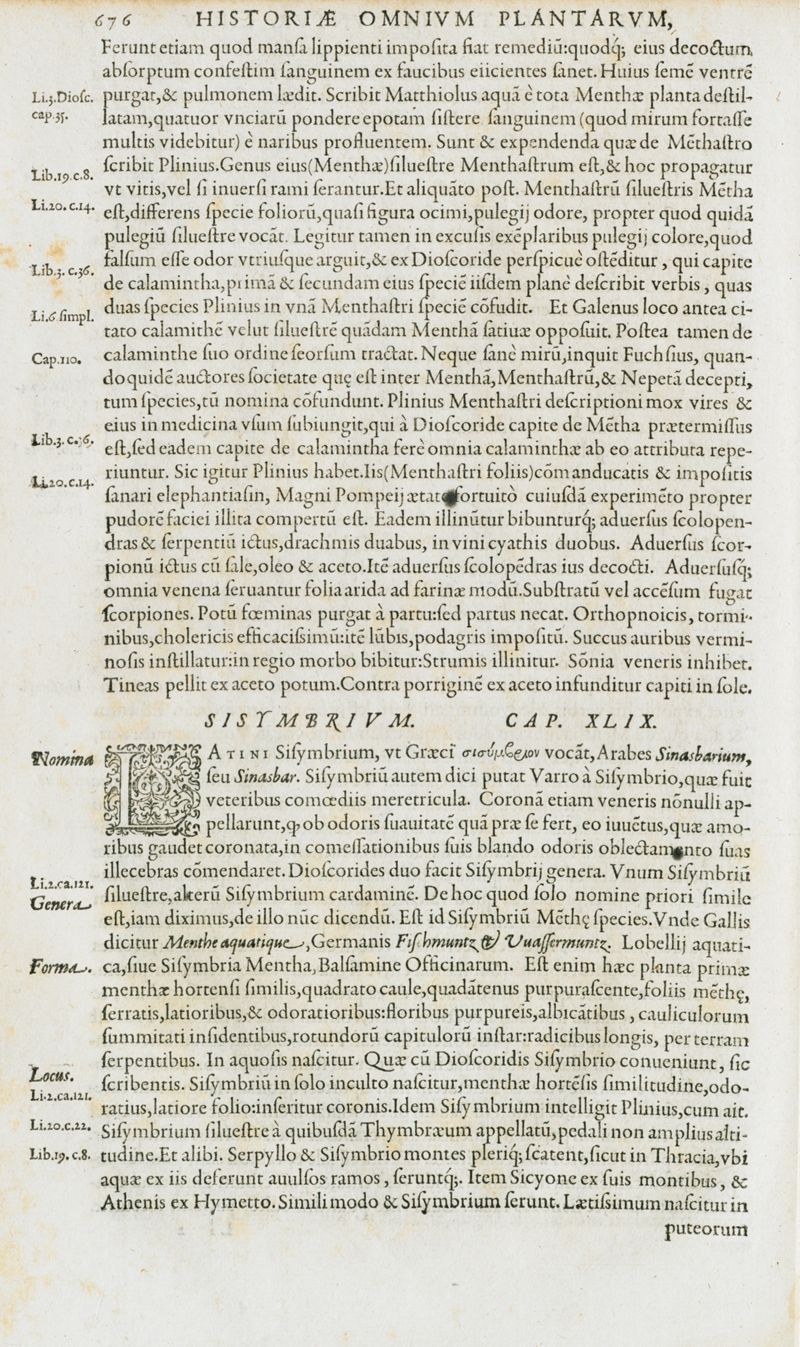 676 HISTORIÆ OMNIVM PLANTARVM,
Ferunt etiam quod manſa lippienti impoſita fiat remediũ:quodq́; eius decoctum,
abſorptum confeſtim ſanguinem ex faucibus eiicientes ſanet. Huius ſemẽ ventrẽ
Li.3.Dioſc. purgat,& pulmonem lædit. Scribit Matthiolus aquã è tota Menthæ planta deſtil-
cap.35. latam,quatuor vnciarũ pondere epotam ſiſtere ſanguinem (quod mirum fortaſſe
multis videbitur) è naribus profluentem. Sunt & expendenda quæ de Mẽthaſtro
Lib.19.c.8. ſcribit Plinius.Genus eius(Menthæ)ſilueſtre Menthaſtrum eſt,& hoc propagatur
vt vitis,vel ſi inuerſi rami ſerantur.Et aliquãto poſt. Menthaſtrũ ſilueſtris Mẽtha
Li.20.c.14. eſt,differens ſpecie foliorũ,quaſi figura ocimi,pulegij odore, propter quod quidã
pulegiũ ſilueſtre vocãt. Legitur tamen in excuſis exẽplaribus pulegij colore,quod
Lib.3.c.36. falſum eſſe odor vtriuſque arguit,& ex Dioſcoride perſpicuè oſtẽditur , qui capite
de calamintha,primã & ſecundam eius ſpeciẽ iiſdem planè deſcribit verbis , quas
Li.6 ſimpl. duas ſpecies Plinius in vnã Menthaſtri ſpeciẽ cõfudit. Et Galenus loco antea ci-
tato calamithẽ velut ſilueſtrẽ quãdam Menthã ſatiuæ oppoſuit. Poſtea tamen de
Cap.110. calaminthe ſuo ordine ſeorſum tractat. Neque ſanè mirũ,inquit Fuchſius, quan-
doquidẽ auctores ſocietate quę eſt inter Menthã,Menthaſtrũ,& Nepetã decepti,
tum ſpecies,tũ nomina cõfundunt. Plinius Menthaſtri deſcriptioni mox vires &
eius in medicina vſum ſubiungit,qui à Dioſcoride capite de Mẽtha prætermiſſus
Lib.3.c.36. eſt,ſed eadem capite de calamintha ferè omnia calaminthæ ab eo attributa repe-
Li.20.c.14. riuntur. Sic igitur Plinius habet.Iis(Menthaſtri foliis)cõmanducatis & impoſitis
ſanari elephantiaſin, Magni Pompeij ætate fortuitò cuiuſdã experimẽto propter
pudorẽ faciei illita compertũ eſt. Eadem illinũtur bibunturq́; aduerſus ſcolopen-
dras & ſerpentiũ ictus,drachmis duabus, in vini cyathis duobus. Aduerſus ſcor-
pionũ ictus cũ ſale,oleo & aceto.Itẽ aduerſus ſcolopẽdras ius decocti. Aduerſuſq́;
omnia venena ſeruantur folia arida ad farinæ modũ.Subſtratũ vel accẽſum fugat
ſcorpiones. Potũ fœminas purgat à partu:ſed partus necat. Orthopnoicis, tormi-
nibus,cholericis efficaciſsimũ:itẽ lũbis,podagris impoſitũ. Succus auribus vermi-
noſis inſtillatur:in regio morbo bibitur:Strumis illinitur. Sõnia veneris inhibet.
Tineas pellit ex aceto potum.Contra porriginẽ ex aceto infunditur capiti in ſole.
SISYMBRIVM. CAP. XLIX.
Nomina LATINI Siſymbrium, vt Græci σισύμβριον vocãt,Arabes Sinasbarium,
ſeu Sinasbar. Siſymbriũ autem dici putat Varro à Siſymbrio,quæ fuit
veteribus comœdiis meretricula. Coronã etiam veneris nõnulli ap-
pellarunt,ꝙ ob odoris ſuauitatẽ quã præ ſe fert, eo iuuẽtus,quæ amo-
ribus gaudet coronata,in comeſſationibus ſuis blando odoris oblectamento ſuas
illecebras cõmendaret. Dioſcorides duo facit Siſymbrij genera. Vnum Siſymbriũ
Li.2.ca.121.
Genera ſilueſtre,alterũ Siſymbrium cardaminẽ. De hoc quod ſolo nomine priori ſimile
eſt,iam diximus,de illo nũc dicendũ. Eſt id Siſymbriũ Mẽthę ſpecies.Vnde Gallis
dicitur Menthe aquatique,Germanis Fiſchmuntz & Vuaſſermuntz. Lobellij aquati-
Forma. ca,ſiue Siſymbria Mentha,Balſamine Officinarum. Eſt enim hæc planta primæ
menthæ hortenſi ſimilis,quadrato caule,quadãtenus purpuraſcente,foliis mẽthę,
ſerratis,latioribus,& odoratioribus:floribus purpureis,albicãtibus , cauliculorum
ſummitati inſidentibus,rotundorũ capitulorũ inſtar:radicibus longis, per terram
ſerpentibus. In aquoſis naſcitur. Quæ cũ Dioſcoridis Siſymbrio conueniunt, ſic
Locus. ſcribentis. Siſymbriũ in ſolo inculto naſcitur,menthæ hortẽſis ſimilitudine,odo-
Li.2.ca.121. ratius,latiore folio:inſeritur coronis.Idem Siſymbrium intelligit Plinius,cum ait.
Li.20.c.22. Siſymbrium ſilueſtre à quibuſdã Thymbræum appellatũ,pedali non amplius alti-
Lib.19.c.8. tudine.Et alibi. Serpyllo & Siſymbrio montes pleriq́; ſcatent,ſicut in Thracia,vbi
aquæ ex iis deferunt auulſos ramos , ſeruntq́;. Item Sicyone ex ſuis montibus , &
Athenis ex Hymetto. Simili modo & Siſymbrium ſerunt. Lætiſsimum naſcitur in
puteorum